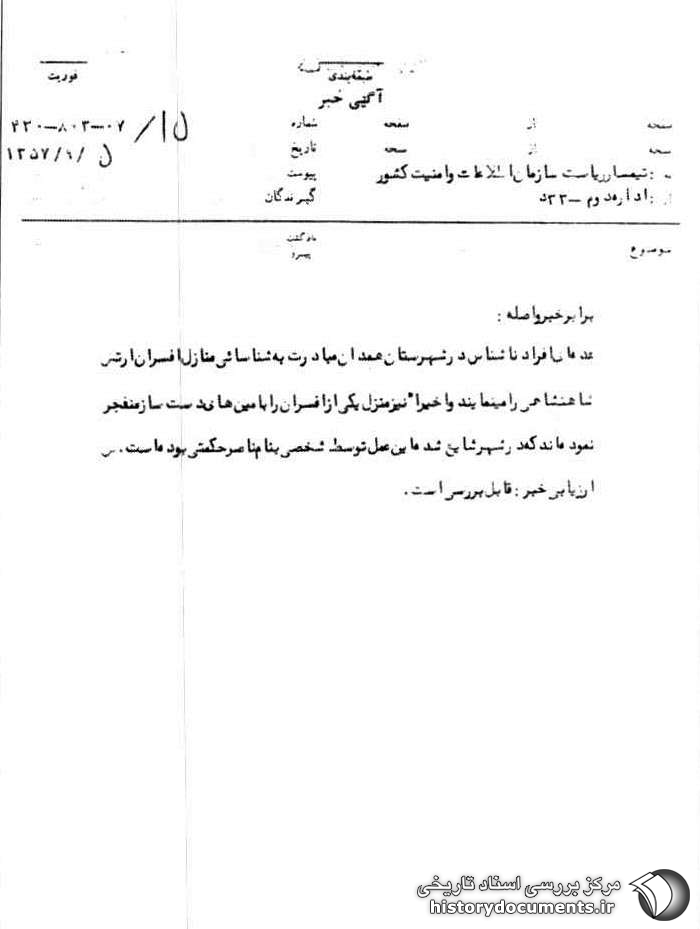 طبقه‌بندی
فوریت
آگهی خبر
صفحه از صفحه شماره ۴۳۰-۸۰۳-۰۷/
صفحه از صفحه تاریخ ۱۳۵۷/۹/
به : تیمسار ریاست سازمان اطلاعات و امنیت کشور پیوست
از : اداره دوم -۳۳د گیرندگان
موضوع بازگشت
پیرو
برابر خبر واصله :
عده‌ای افراد ناشناس در شهرستان همدان مبادرت به شناسائی منازل افسران ارتش
شاهنشاهی را مینمایند و اخیرا" نیز منزل یکی از افسران را با مین‌های دست ساز منفجر
نموده‌اند که در شهر شایع شده این عمل توسط شخصی بنام ناصر حکمتی بوده است .س
ارزیابی خبر : قابل بررسی است .
مرکز بررسی اسناد تاریخی
historydocuments.ir